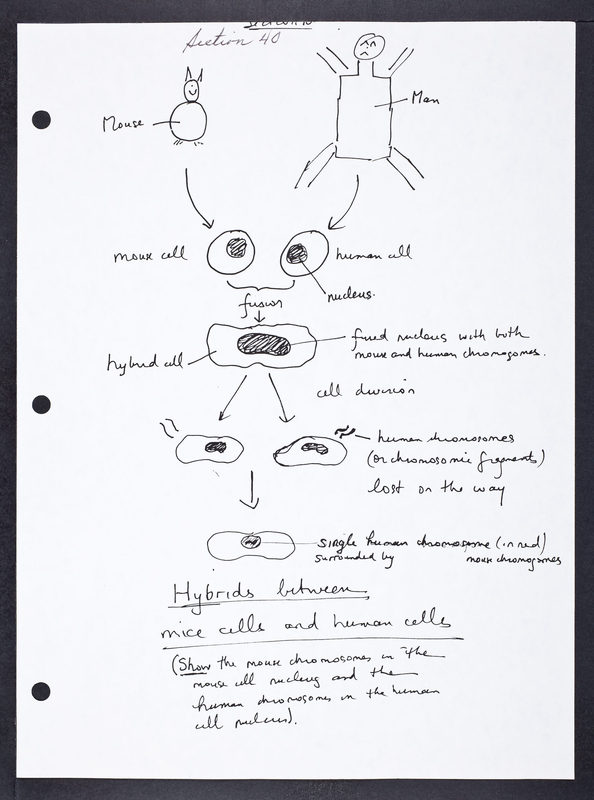 Section 40
Mouse
Man
mouse cell
human cell
nucleus.
fusion
hybrid cell
fused nucleus with both
mouse and human chromosomes.
cell division
human chromosomes
(or chromosomic fragments)
lost on the way
single human chromosome (in red)
surrounded by mouse chromosomes
Hybrids between
mice cells and human cells
(Show the mouse chromosomes in the
mouse cell nucleus and the
human chromosomes in the human
cell nucleus).